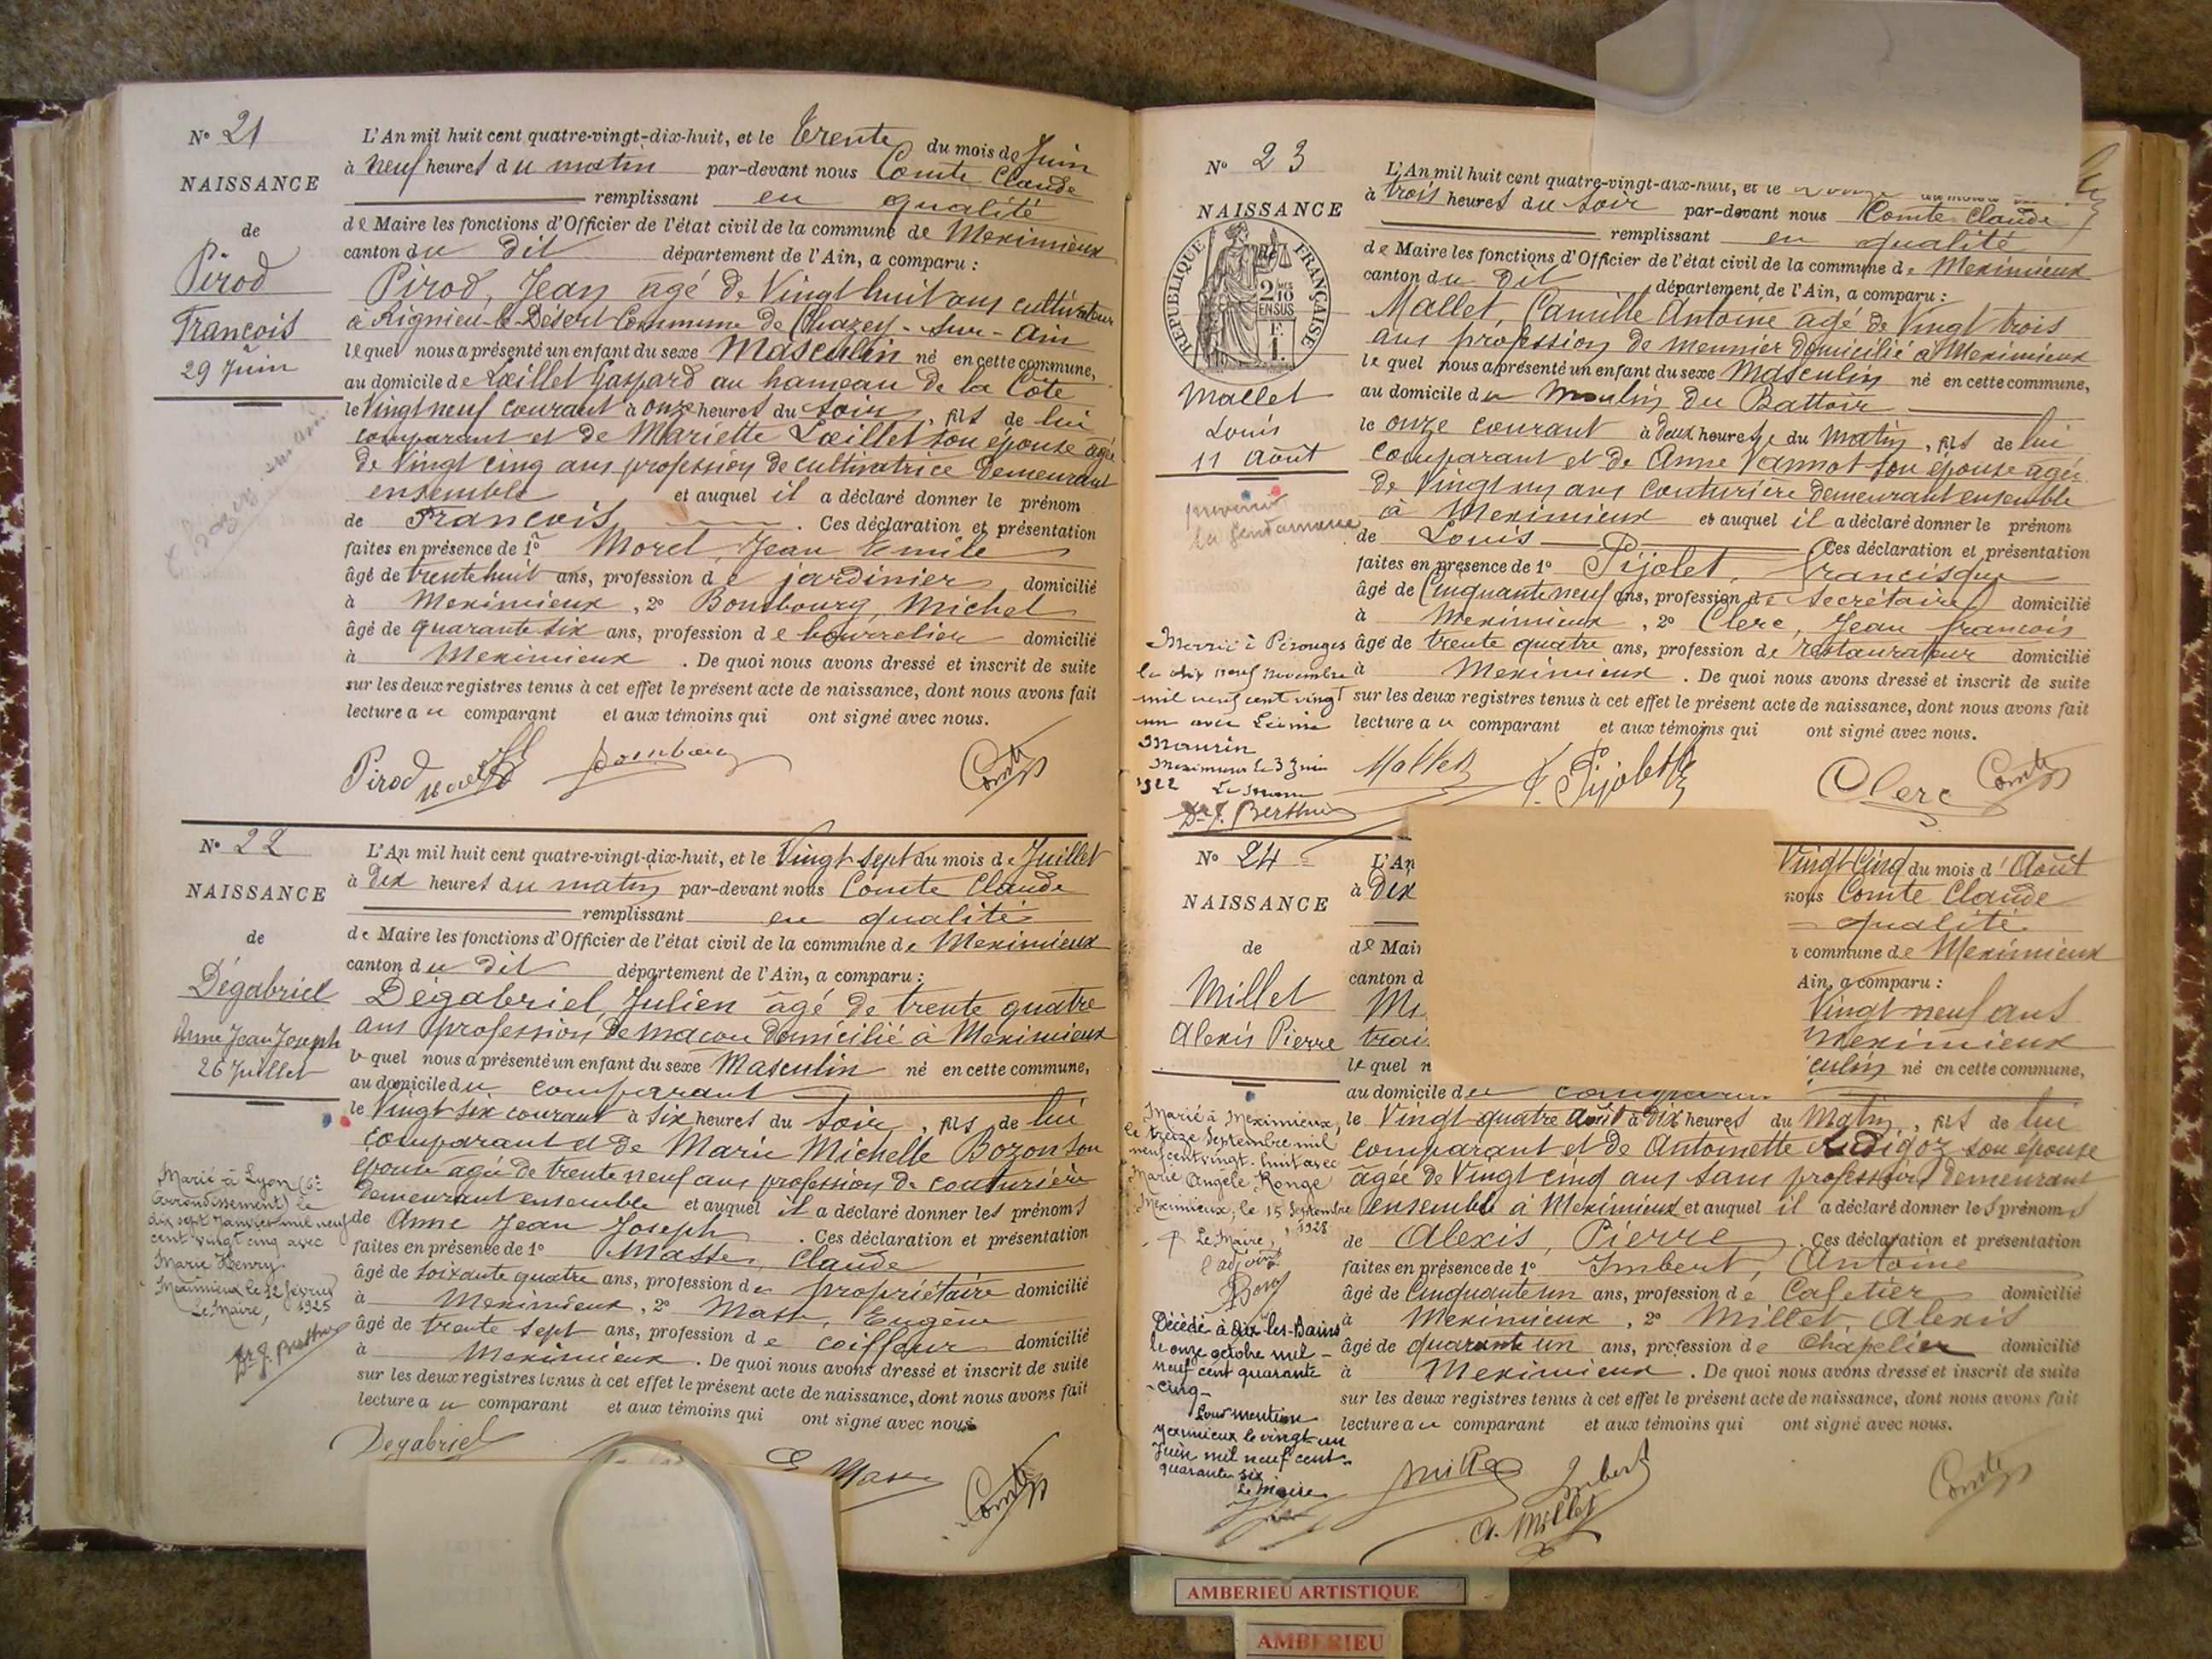 N° 21
NAISSANCE
de
Pirod
François
29 Juin
L'An mil huit cent quatre-vingt-dix-huit, et le trente du mois de Juin
à neuf heures du matin par-devant nous Comte Claude
remplissant en qualité
de Maire les fonctions d'Officier de l'état civil de la commune de Meximieux
canton du dit département de l'Ain, a comparu :
Pirod, Jean âgé de Vingt huit ans cultivateur
à Rignieu-le-Désert Commune de Chazey-sur-Ain
lequel nous a présenté un enfant du sexe Masculin né en cette commune,
au domicile de Lœillet Gaspard au hameau de la Côte
le Vingt neuf courant à onze heures du soir, fils de lui
comparant et de Mariette Lœillet son épouse âgée
de Vingt cinq ans profession de cultivatrice demeurant
ensemble et auquel il a déclaré donner le prénom
de François. Ces déclaration et présentation
faites en présence de 1° Morel, Jean Emile
âgé de trente huit ans, profession de jardinier domicilié
à Meximieux, 2° Bombourg, Michel
âgé de quarante six ans, profession de bourrelier domicilié
à Meximieux. De quoi nous avons dressé et inscrit de suite
sur les deux registres tenus à cet effet le présent acte de naissance, dont nous avons fait
lecture au comparant et aux témoins qui ont signé avec nous.
Pirod Bombourg Comte
N° 22
NAISSANCE
de
Dégabriel
Anne Jean Joseph
26 Juillet
Marié à Lyon (6e
Arrondissement) le
dix sept Janvier mil neuf
cent vingt cinq avec
Marie Henry
Meximieux le 12 février
Le Maire, 1925
Dr J. Berthier
L'An mil huit cent quatre-vingt-dix-huit, et le Vingt sept du mois de Juillet
à dix heures du matin par-devant nous Comte Claude
remplissant en qualité
de Maire les fonctions d'Officier de l'état civil de la commune de Meximieux
canton du dit département de l'Ain, a comparu :
Dégabriel, Julien âgé de trente quatre
ans profession de maçon domicilié à Meximieux
lequel nous a présenté un enfant du sexe Masculin né en cette commune,
au domicile du comparant
le Vingt six courant à six heures du soir, fils de lui
comparant et de Marie Michelle Bozon son
épouse agée de trente neuf ans profession de couturière
demeurant ensemble et auquel il a déclaré donner les prénoms
de Anne Jean Joseph. Ces déclaration et présentation
faites en présence de 1° Masse, Claude
âgé de soixante quatre ans, profession de propriétaire domicilié
à Meximieux, 2° Masse, Eugène
âgé de trente sept ans, profession de coiffeur domicilié
à Meximieux. De quoi nous avons dressé et inscrit de suite
sur les deux registres tenus à cet effet le présent acte de naissance, dont nous avons fait
lecture au comparant et aux témoins qui ont signé avec nous
Degabriel E Masse Comte
N° 23
NAISSANCE
de
REPUBLIQUE FRANÇAISE
2 10mes
EN SUS
Mallet
Louis
11 Août
prévenir
la gendarmerie
Marié à Pérouges
le dix neuf novembre
mil neuf cent vingt
un avec Léonie
Maurin
Meximieux le 3 Juin
1922 Le Maire
Dr J. Berthier
L'An mil huit cent quatre-vingt-dix-huit, et le
à trois heures du soir par-devant nous Comte Claude
remplissant en qualité
de Maire les fonctions d'Officier de l'état civil de la commune de Meximieux
canton du dit département de l'Ain, a comparu :
Mallet, Camille Antoine agé de Vingt trois
ans profession de meunier domicilié à Meximieux
lequel nous a présenté un enfant du sexe Masculin né en cette commune,
au domicile du Moulin du Battoir
le onze courant à deux heures du matin, fils de lui
comparant et de Anne Vannot son épouse agée
de Vingt un ans couturière demeurant ensemble
à Meximieux et auquel il a déclaré donner le prénom
de Louis Ces déclaration et présentation
faites en présence de 1° Pijolet, Francisque
âgé de Cinquante neuf ans, profession de secrétaire domicilié
à Meximieux, 2° Clerc, Jean François
âgé de trente quatre ans, profession de restaurateur domicilié
à Meximieux. De quoi nous avons dressé et inscrit de suite
sur les deux registres tenus à cet effet le présent acte de naissance, dont nous avons fait
lecture au comparant et aux témoins qui ont signé avec nous.
Mallet F. Pijolet Clerc Comte
N° 24
NAISSANCE
de
Millet
Alexis Pierre
Marié à Meximieux,
le treize Septembre mil
neuf cent vingt-huit avec
Marie Angèle Ronge
Meximieux, le 15 Septembre
1928
Le Maire,
l'adjoint
Décédé à Aix-les-Bains
le onze octobre mil
neuf cent quarante
-cinq-
Pour mention
Meximieux le vingt-un
Juin mil neuf cent
quarante six
Le Maire
L'An Vingt Cinq du mois d'Août
à Dix nous Comte Claude
qualité
de Mair commune de Meximieux
canton d Ain, a comparu :
Mi Vingt neuf ans
trai Meximieux
lequel n culin né en cette commune,
au domicile du comparant
le Vingt quatre Août à dix heures du Matin, fils de lui
comparant et de Antoinette Ludigoz son épouse
âgée de Vingt cinq ans sans profession demeurant
ensemble à Meximieux et auquel il a déclaré donner les prénoms
de Alexis, Pierre. Ces déclaration et présentation
faites en présence de 1° Imbert, Antoine
âgé de Cinquante un ans, profession de Cafetier domicilié
à Meximieux, 2° Millet, Alexis
âgé de quarante un ans, profession de Chapelier domicilié
à Meximieux. De quoi nous avons dressé et inscrit de suite
sur les deux registres tenus à cet effet le présent acte de naissance, dont nous avons fait
lecture au comparant et aux témoins qui ont signé avec nous.
Millet Imbert Comte
A. Millet
AMBERIEU ARTISTIQUE
AMBERIEU